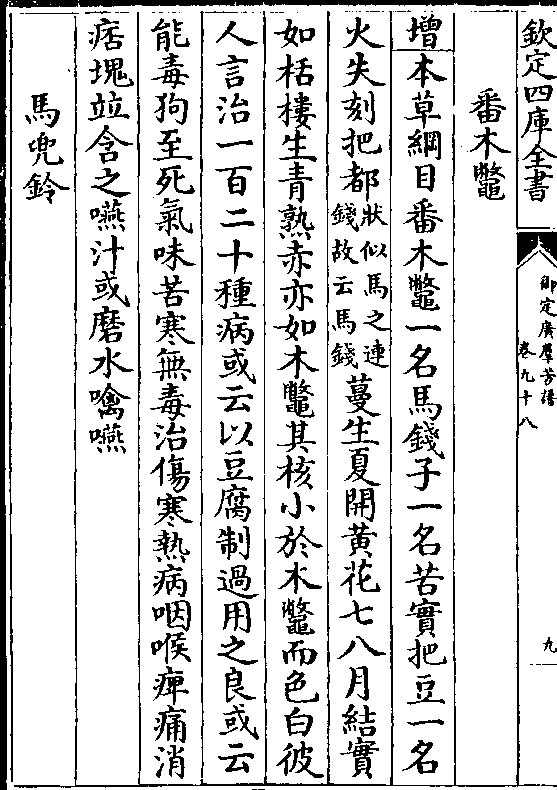 欽定四庫全書
御定廣羣芳譜
卷九十八
九
番木鼈
增本草綱目番木鼈一名馬錢子一名苦實把豆一名
火失刻把都狀似馬之連錢故云馬錢蔓生夏開黄花七八月結實
如栝樓生青熟赤亦如木鼈其核小於木鼈而色白彼
人言治一百二十種病或云以豆腐制過用之良或云
能毒狗至死氣味苦寒無毒治傷寒熱病咽喉痺痛消
痞塊竝含之嚥汁或磨水噙嚥
馬兜鈴